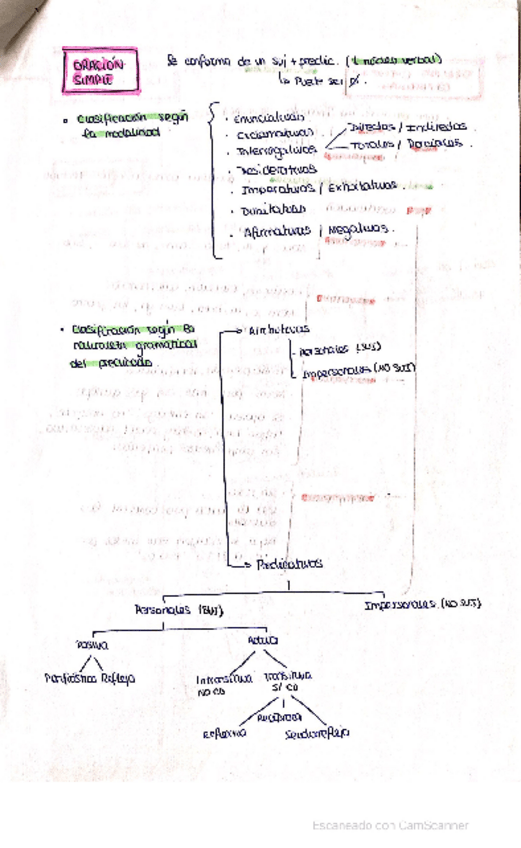 ORACIÓN
SIMPLE
Se conforma de un suj + predic. (1 núcleo verbal)
↳ Puede ser Ø.
• Clasificación según
la modalidad
· Enunciativas
· Exclamativas
· Interrogativas
Directas / Indirectas
Totales / Parciales.
· Desiderativas
· Imperativas / Exhortativas.
· Dubitativas
· Afirmativas / Negativas.
• Clasificación según la
naturaleza gramatical
del predicado
→ Atributivas
- Personales (SUJ)
- Impersonales (NO SUJ)
→ Predicativas
Personales (SUJ)
Impersonales (NO SUJ)
Pasiva
Activa
Perifrástica Refleja
Intransitiva
NO CD
Transitiva
SÍ CD
Recíproca
Reflexiva
Seudorrefleja
Escaneado con CamScanner